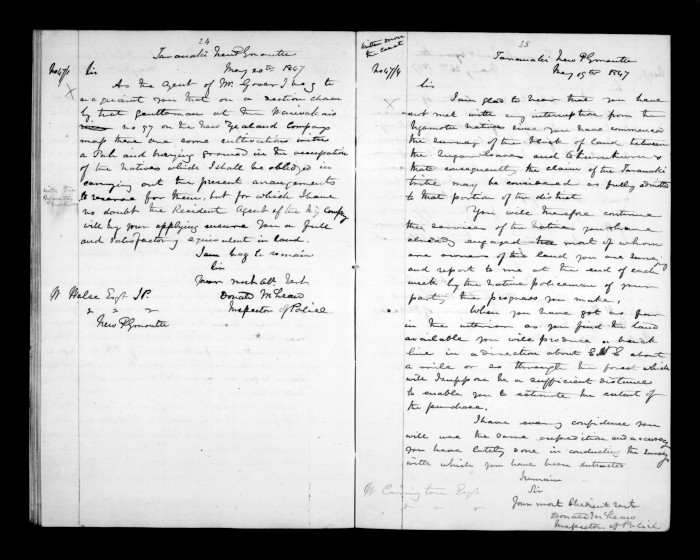 24
Taranaki New Plymouth
May 20th 1847
No 47/1
Sir
As the Agent of Mr. Gover I beg to
acquaint you that on a section chosen
by that gentleman at the Waiwakaio
no 37 on the New Zealand Companys
map there are some cultivations with
a Pah and burying ground in the occupation
of the Natives which I shall be obliged in
carrying out the present arrangements
to reserve for them, but for which I have
no doubt the Resident Agent of the NZ Compy
will by your applying ensure you a full
and satisfactory equivalent in land.
I beg to remain
Sir
Your most obt Servt
W Halse Esqr J.P.
Donald McLean
" " "
Inspector of Police
New Plymouth
25
written from
the coast
Taranaki New Plymouth
May 15th 1847
No 47/4
Sir
I am glad to hear that you have
not met with any interruption from the
Ngamotu natives since you have commenced
the survey of the block of land between
the Sugar Loaves and
that consequently the claim of the Taranaki
tribe may be considered as fully admitted
to that portion of the district
You will therefore continue
the services of the natives you have
already engaged most of whom
are owners of the land you are surveying
and report to me at the end of each
week by the native policeman of your
party the progress you make.
When you have got as far
in the interior as you find the land
available you will produce a back
line in a direction about about
a mile or so through the forest which
will I suppose be a sufficient distance
to enable you to estimate the extent of
the purchase.
I have every confidence you
will use the same expedition and accuracy
you have lately done in conducting the surveys
with which you have been entrusted
I remain
Sir
W Carrington Esqr
Your most Obedient Servt
" " "
Donald McLean
Inspector of Police